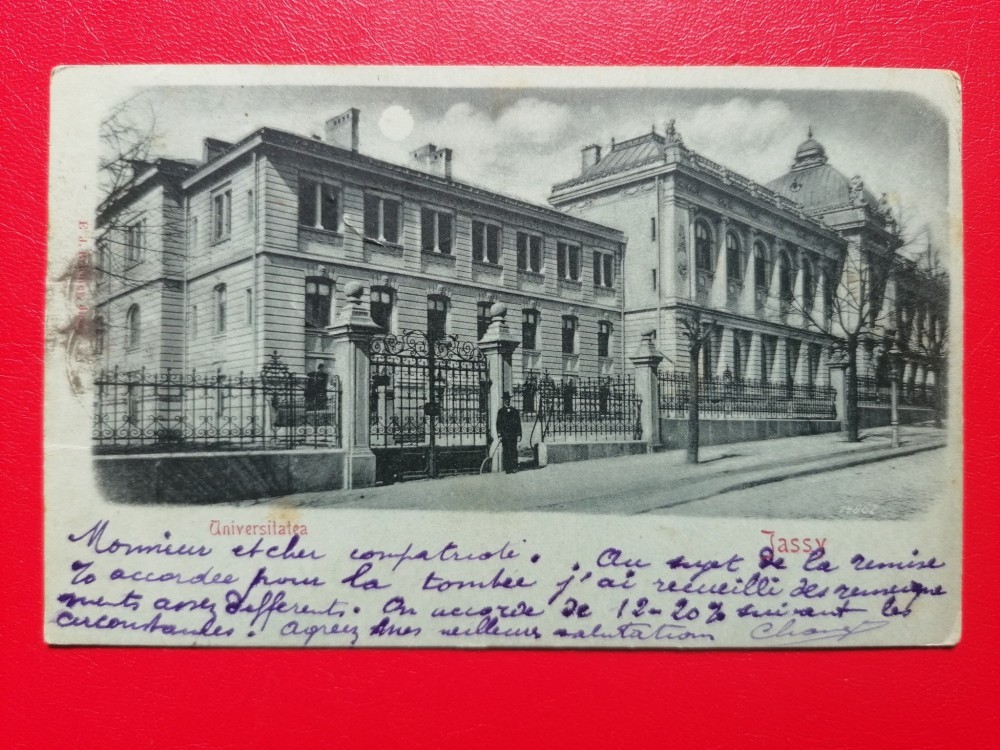 Universitatea
Jassy
14602
Monsieur et cher compatriote. Au sujet de la remise
% accordée pour la tombée j'ai recueilli des renseigne
ments assez differents. On accorde de 12-20% suivant les
circonstances. Agreez mes meilleures salutations